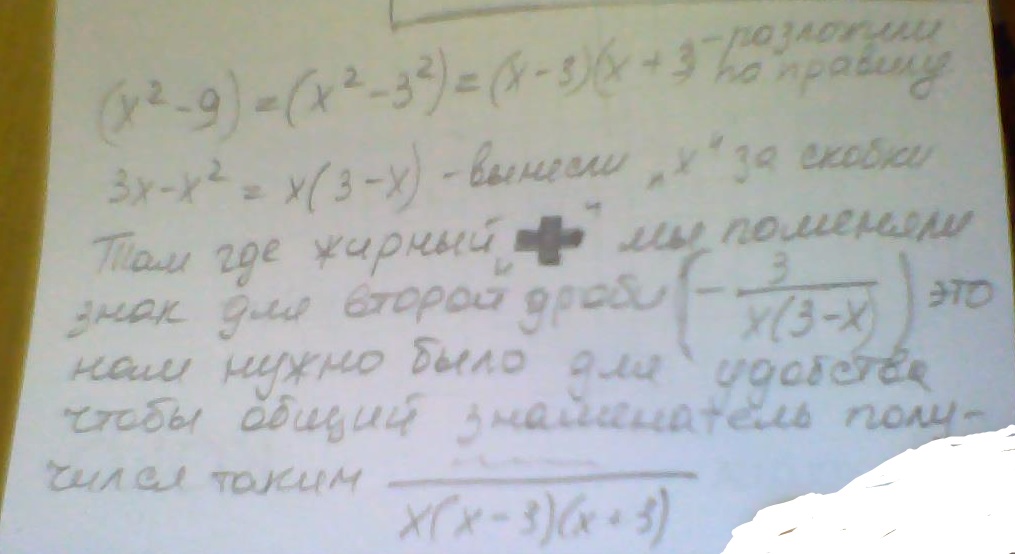 (x² - 9) = (x² - 3²) = (x - 3)(x + 3 - разложили по правилу
3x - x² = x(3 - x) - вынесли „x" за скобки
Там где жирный „+" мы поменяли
знак для второй дроби (- 3/x(3-x)) это
нам нужно было для удобства
чтобы общий знаменатель полу-
чился таким ──── x(x-3)(x+3)